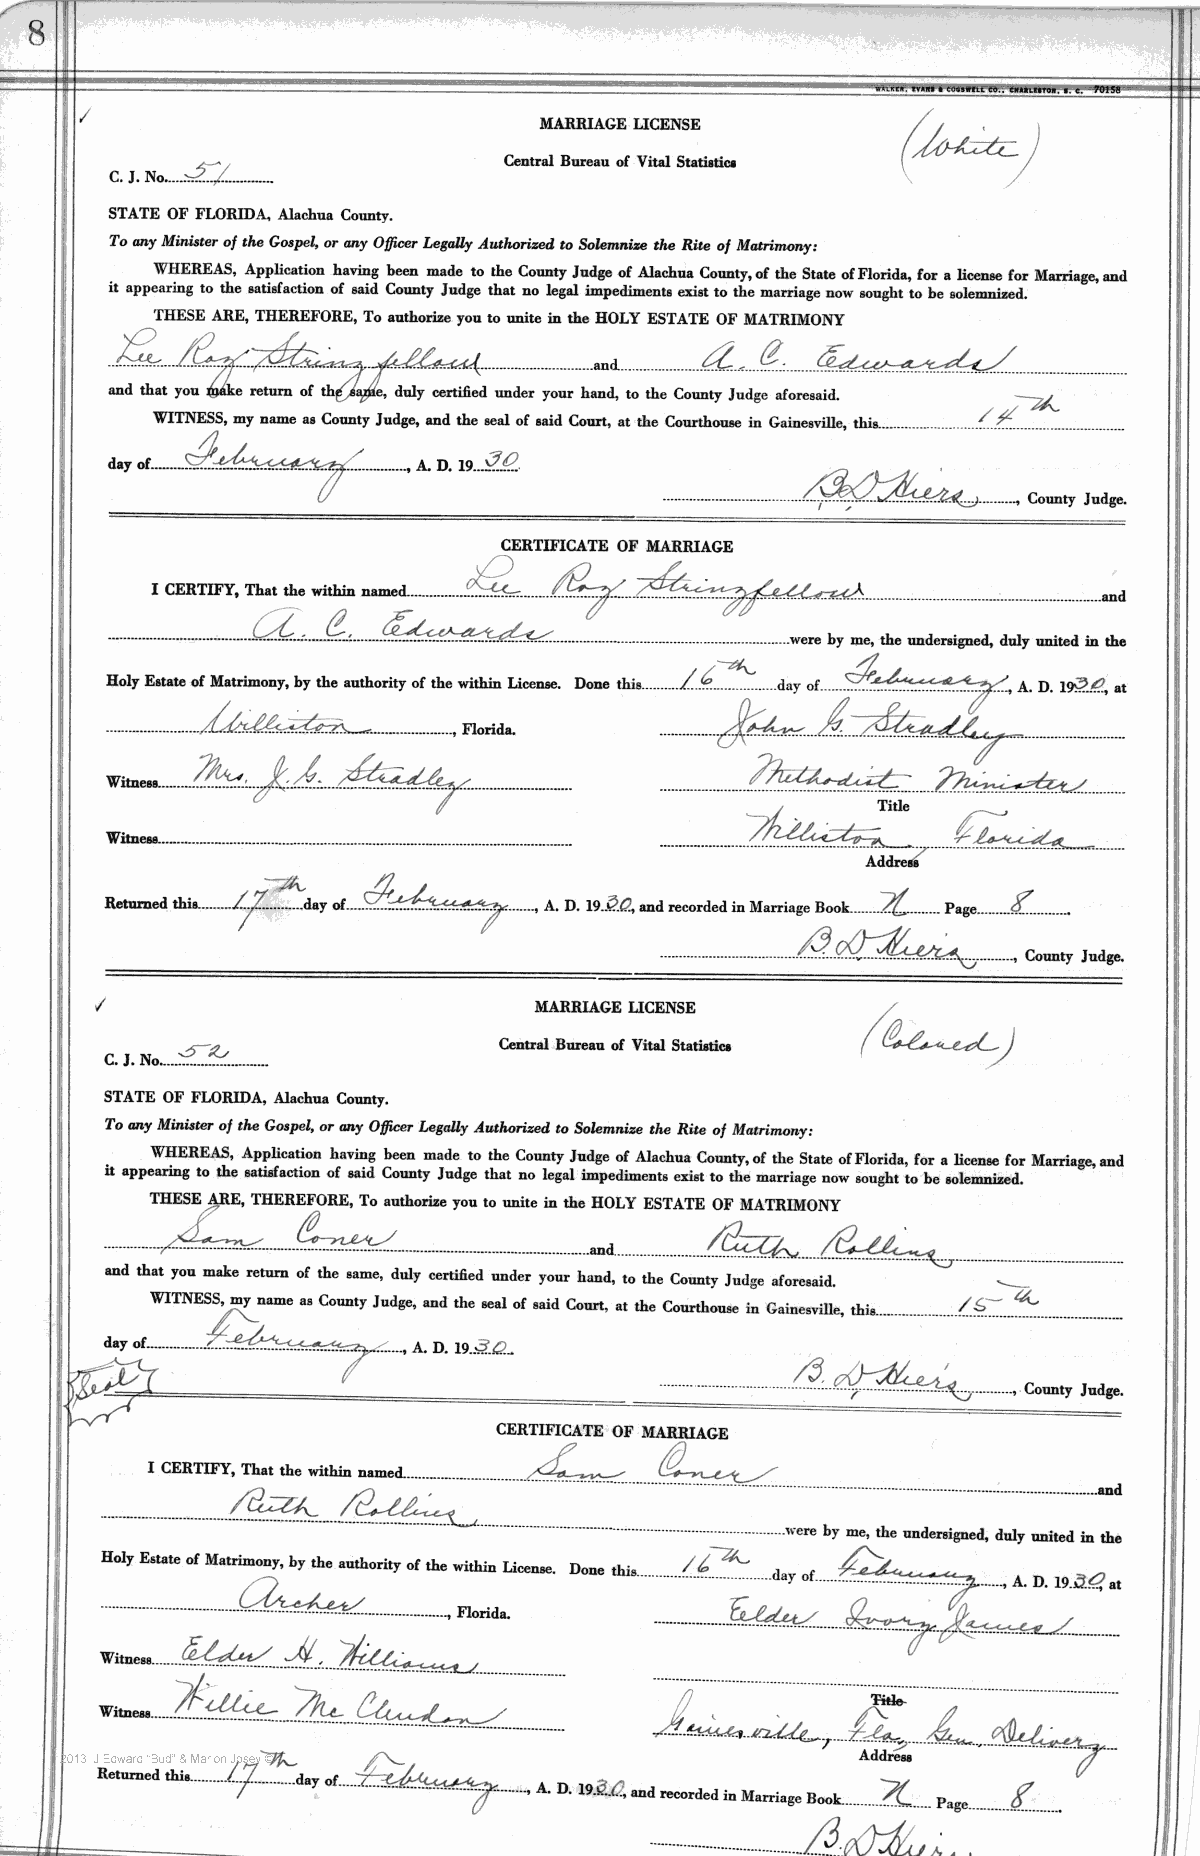 8
WALKER, EVANS & COGSWELL CO., CHARLESTON, S. C. 70158
MARRIAGE LICENSE
(White)
Central Bureau of Vital Statistics
C. J. No. 51
STATE OF FLORIDA, Alachua County.
To any Minister of the Gospel, or any Officer Legally Authorized to Solemnize the Rite of Matrimony:
WHEREAS, Application having been made to the County Judge of Alachua County, of the State of Florida, for a license for Marriage, and
it appearing to the satisfaction of said County Judge that no legal impediments exist to the marriage now sought to be solemnized.
THESE ARE, THEREFORE, To authorize you to unite in the HOLY ESTATE OF MATRIMONY
Lee Roy Stringfellow and A. C. Edwards
and that you make return of the same, duly certified under your hand, to the County Judge aforesaid.
WITNESS, my name as County Judge, and the seal of said Court, at the Courthouse in Gainesville, this 14th
day of February, A. D. 1930
B. D. Hiers, County Judge.
CERTIFICATE OF MARRIAGE
I CERTIFY, That the within named Lee Roy Stringfellow and
A. C. Edwards were by me, the undersigned, duly united in the
Holy Estate of Matrimony, by the authority of the within License. Done this 16th day of February, A. D. 1930, at
Williston, Florida. John G. Stradley
Witness Mrs. J. G. Stradley Methodist Minister
Title
Witness Williston, Florida
Address
Returned this 17th day of February, A. D. 1930, and recorded in Marriage Book N Page 8
B. D. Hiers, County Judge.
MARRIAGE LICENSE
(Colored)
Central Bureau of Vital Statistics
C. J. No. 52
STATE OF FLORIDA, Alachua County.
To any Minister of the Gospel, or any Officer Legally Authorized to Solemnize the Rite of Matrimony:
WHEREAS, Application having been made to the County Judge of Alachua County, of the State of Florida, for a license for Marriage, and
it appearing to the satisfaction of said County Judge that no legal impediments exist to the marriage now sought to be solemnized.
THESE ARE, THEREFORE, To authorize you to unite in the HOLY ESTATE OF MATRIMONY
Sam Coner and Ruth Rollins
and that you make return of the same, duly certified under your hand, to the County Judge aforesaid.
WITNESS, my name as County Judge, and the seal of said Court, at the Courthouse in Gainesville, this 15th
day of February, A. D. 1930.
Seal
B. D. Hiers, County Judge.
CERTIFICATE OF MARRIAGE
I CERTIFY, That the within named Sam Coner and
Ruth Rollins were by me, the undersigned, duly united in the
Holy Estate of Matrimony, by the authority of the within License. Done this 16th day of February, A. D. 1930, at
Archer, Florida. Eelder Ivory James
Witness Elder H. Williams
Title
Witness Willie Mc Clendon Gainesville, Fla, Gen. Delivery
Address
2013 J Edward "Bud" & Marion Josey ©
Returned this 17th day of February, A. D. 1930, and recorded in Marriage Book N Page 8
B. D. Hiers